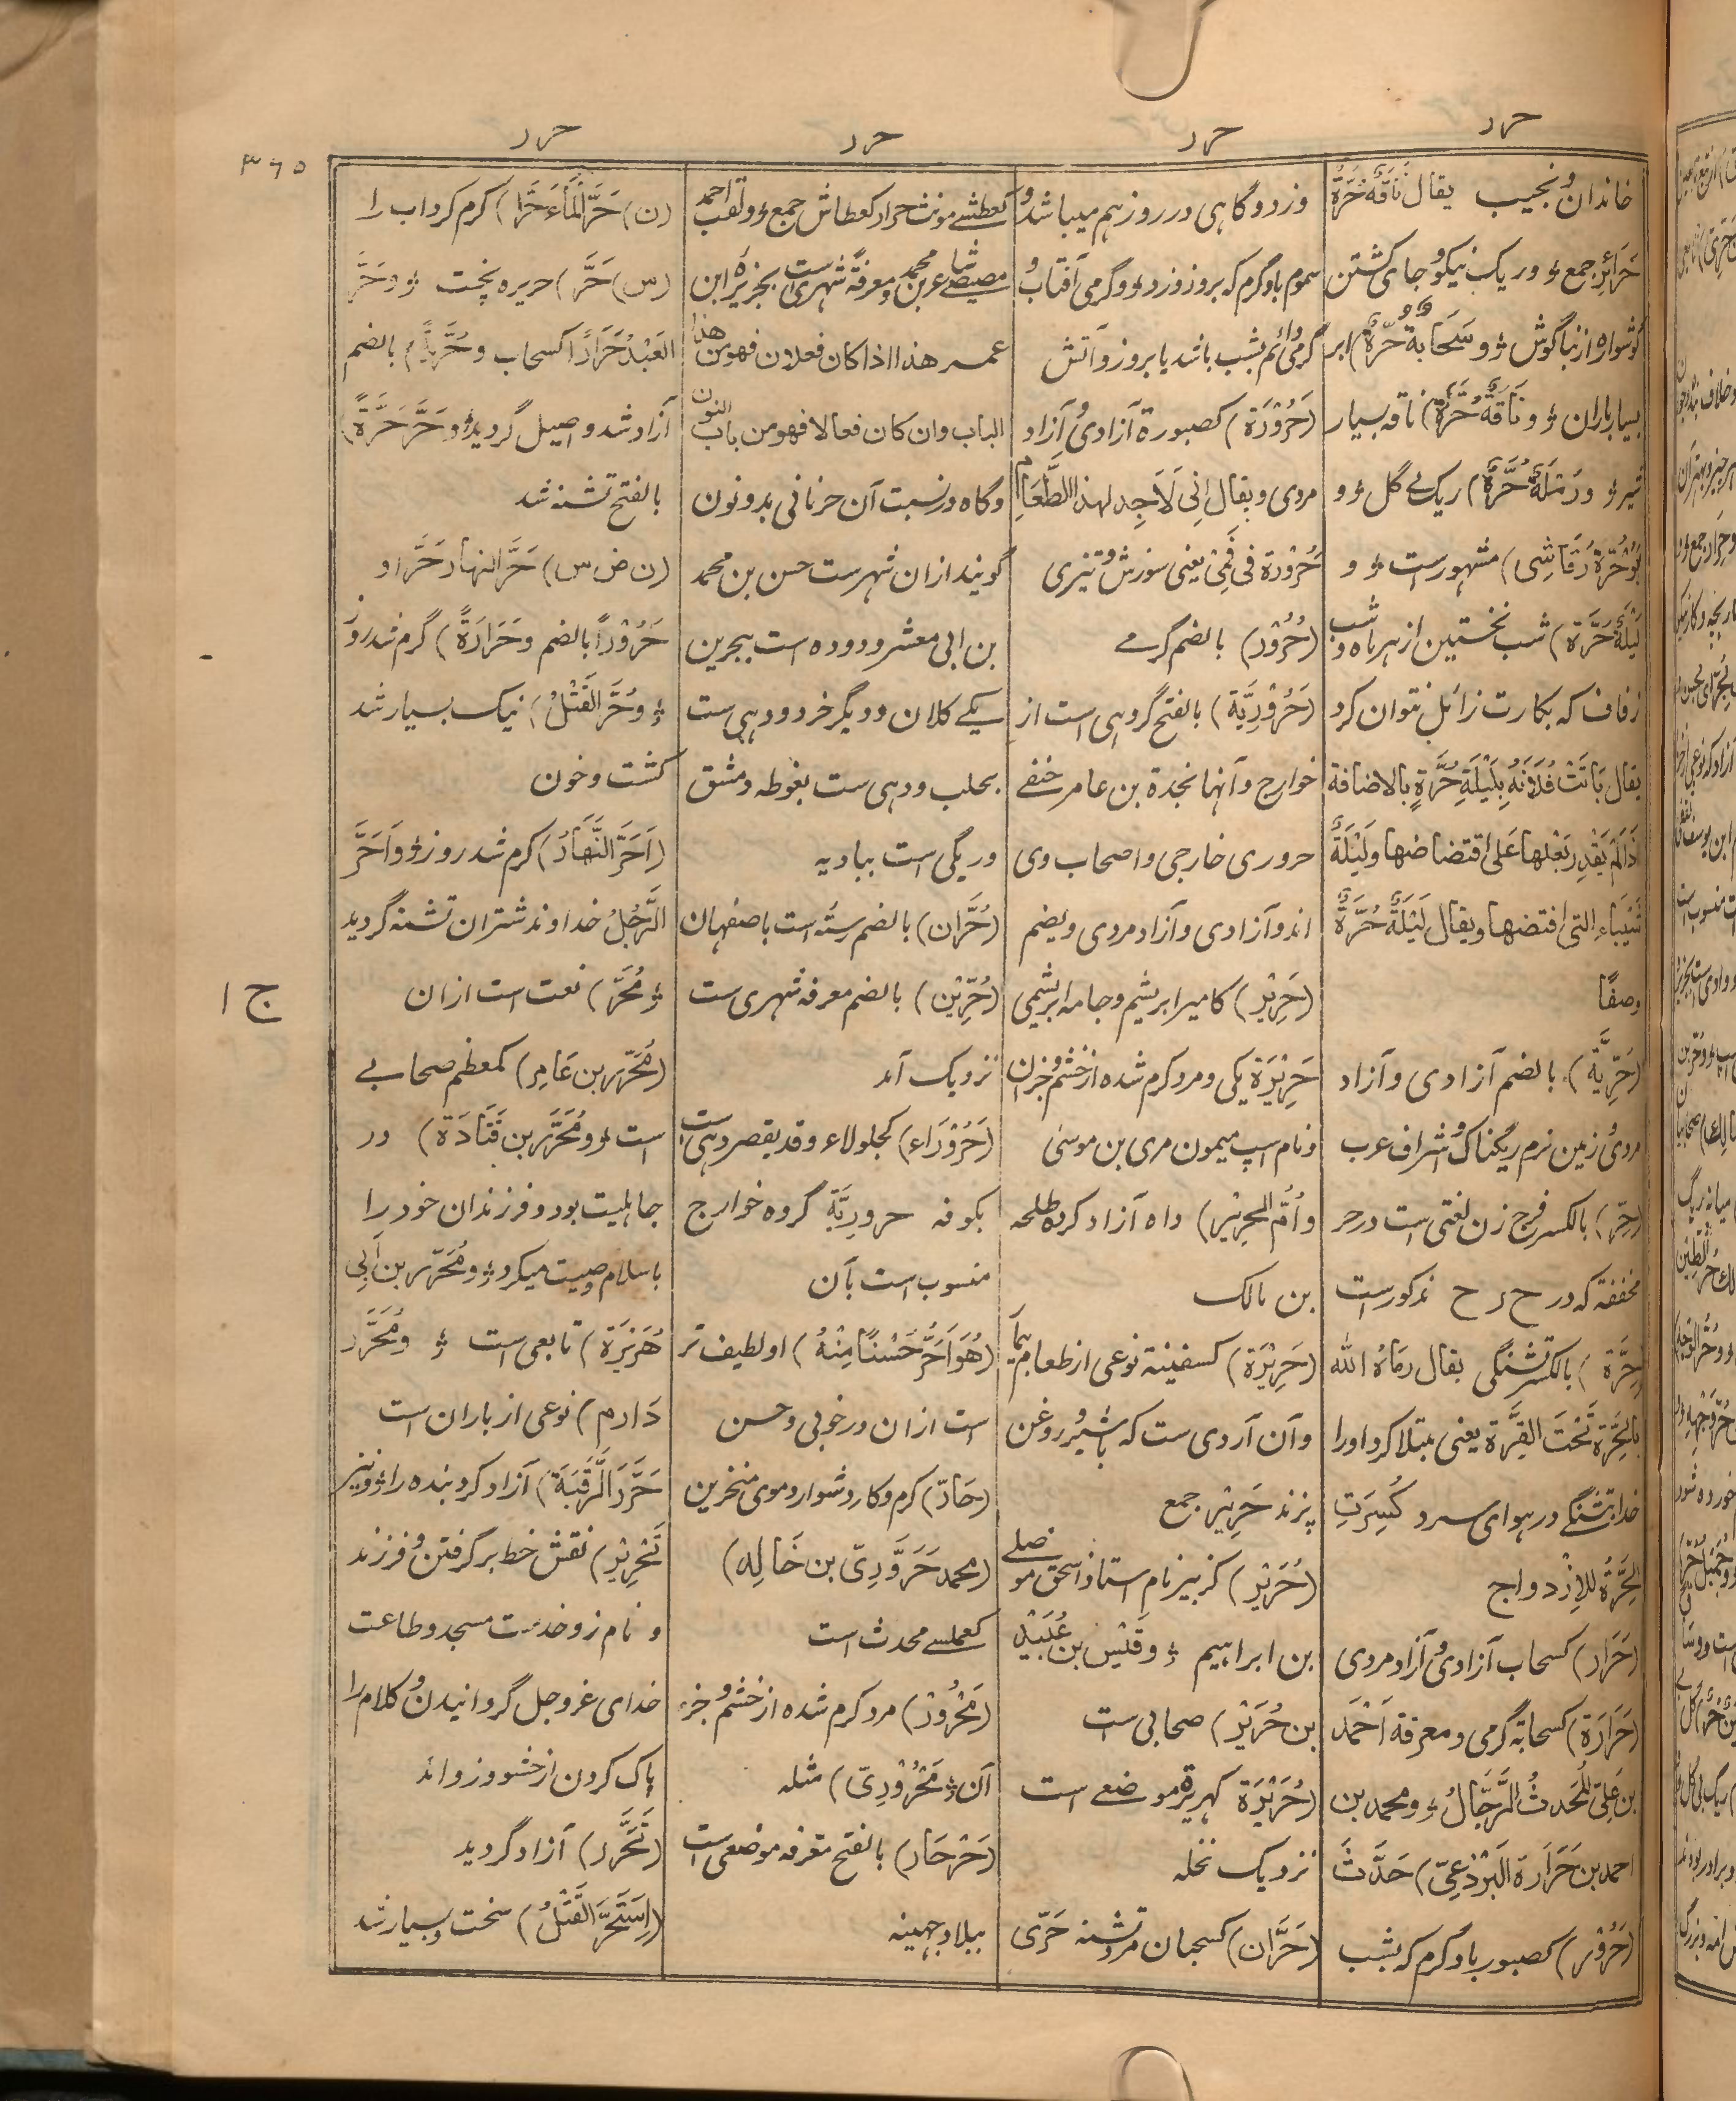 حرر
حرر
حرر
حرر
۳۶۵
خاندان و نجیب یقال نَاقَةٌ حُرَّةٌ
حَرَائِر جمع ؤ و ریک نیکو و جای گشتن
گوشواره از بناگوش ؤ و سَحَابَةٌ حُرَّةٌ) ابر
بسیار باران ؤ و نَاقَةٌ حُرَّةٌ) ناقه بسیار
شیر ؤ و رَمْلَةٌ حُرَّةٌ) ریک بے گل ؤ و
بُوْحُرَّةَ رَقَاشِی) مشهورست ؤ و
لَیْلَةُ حُرَّة) شب نخستین از هر ماه و شب
زفاف که بکارت زائل نتوان کرد
یقال بَاتَتْ فُلَانَةُ بِلَیْلَةِ حُرَّةٍ بالاضافة
اذَا لَمْ یَقْدِر بَعْلها عَلی اقتضاضها و لَیْلَةٌ
شَیْبَاء التی افتضها و یقال لَیْلَةٌ حُرَّةٌ
وصفًا
(حُرِّیَّة) بالضم آزادی و آزاد
مردی و زمین نرم ریگناک و اشراف عرب
(حِر) بالکسر فرج زن لغتی است در حر
مخففة که در ح ر ح مذکورست
(حِرَّة) بالکسر تشنگی یقال رمَاهُ الله
بالحِرَّة تَحْتَ القِرَّة یعنی مبتلا کرد او را
خدا بتشنگے در هوای سرد کُسِرَتِ
الحِرَّةُ لِلاِزْدواج
(حَرَار) کسحاب آزادی و آزاد مردی
(حَرَارَة) کسحابة گرمی و معرفة اَحْمَد
بن عَلِیّ المُحَدِثُ الرَّحَّالُ ؤ و محمد بن
احمد بن حَرَارَة البَرْذَعِیّ) حَدَّثَ
(حَرُوْر) کصبور باد گرم که بشب
وزد و گاهی در روز هم میباشد و
سموم باد گرم که بروز وزد ؤ و گرمی آفتاب و
گرمی دائم بشب باشد یا بروز و آتش
(حَرُوْرَة) کصبورة آزادی و آزاد
مردی و یقال اِنی لَاَجِد لهذا الطَّعَامِ
حُرُوْرة فی فَمِیْ یعنی سوزش و تیزی
(حُرُوْر) بالضم گرمے
(حَرُوْرِیَّة) بالفتح گروهی است از
خوارج و آنها نجدة بن عامر حنفے
حروری خارجی و اصحاب وی
اند و آزادی و آزاد مردی و یضم
(حَرِیْر) کامیر ابریشم و جامه ابریشمی
حَرِیْرَة یکی و مرد گرم شده از خشم و جز آن
و نام اسپ میمون مری بن موسی
و اُمُّ الحَرِیْر) داه آزاد کرده طلحه
بن مالک
(حَرِیْرَة) کسفینة نوعی از طعام
و آن آردی ست که باشیر و روغن
پزند حَرِیْر جمع
(حُرَیْر) کزبیر نام استاذ اسحق موصلے
بن ابراهیم ؤ و قَیْس بن عُبَیْد
بن حُرَیْر) صحابی ست
(حُرَیْرَة کهریرة موضعے است
نزدیک نخله
(حَرَّان) کسحبان مرد تشنه حَرّی
کعطشے مونث حرار کعطاش جمع ؤ و لقب احمد
مصیصے عرب محمد و معرفة شهری ست بجزیره ابن
عمر هذا اذا کان فعلان فهو من هذا
الباب و ان کان فعالا فهو من باب النون
و گاه در نسبت آن حرنانی بدو نون
گویند از ان شهرست حسن بن محمد
بن ابی معشر و دو ده است ببحرین
یکے کلان و دیگر خرد و دهی ست
بحلب و دهی ست بغوطه دمشق
و ریگی است ببادیه
(حُرَّان) بالضم رسته است باصفهان
(حُرِّیْن) بالضم معرفه شهری ست
نزدیک آمد
(حَرُوْرَاء) کجلولاء و قد یقصر دهی ست
بکوفه حروریَّة گروه خوارج
منسوب است بآن
(هُوَ اَحَرُّ حُسْنًا مِنْهُ) او لطیف تر
است از ان در خوبی و حسن
(حَارّ) گرم و کار دشوار و موی منخرین
(محمد حَرَّوْرِیّ بن خَالِد)
کعملسے محدث است
(مَحْرُوْر) مرد گرم شده از خشم و جز
آن ؤ مَحْرُوْرِیّ) مثله
(حَرْحَار) بالفتح معرفه موضعی ست
ببلاد جهینه
(ن) حَرَّ المَاءَ حَرًّا) گرم کرد اب را
(س) حَرَّ) حریره پخت ؤ و حَرَّ
العَبْدُ حَرَارًا کسحاب و حُرِّیَّةً) بالضم
آزاد شد و اصیل گردید ؤ و حَرَّ حَرَّةً)
بالفتح تشنه شد
(ن ض س) حَرَّ النهار حَرًّا و
حُرُوْرًا بالضم و حَرَارَةً) گرم شد روز
ؤ و حُرَّ القَتْلُ) نیک بسیار شد
کشت و خون
(اَحَرَّ النَّهَارُ) گرم شد روز ؤ و اَحَرَّ
الرَّجُلُ خداوند شتران تشنه گردید
ؤ مُحَرّ) نعت است از ان
(مُحَرَّر بن عَامِر) کمعظم صحابے
است ؤ و مُحَرَّر بن قَتَادَة) در
جاهلیت بود و فرزندان خود را
باسلام وصیت میکرد ؤ و مُحَرَّر بن اَبِی
هُرَیْرَة) تابعی است ؤ و مُحَرَّر
دَارِم) نوعی از باران است
حَرَّرَ الرَّقَبَةَ) آزاد کرد بنده را ؤ و نیز
تَحْرِیْر) نقش خط برگرفتن و فرزند
و نام زو خدمت مسجد و طاعت
خدای عزوجل گردانیدن و کلام را
پاک کردن از حشو و زوائد
(تَحَرَّرَ) آزاد گردید
(اِسْتَحَرَّ القَتْلُ) سخت و بسیار شد
ج ۱